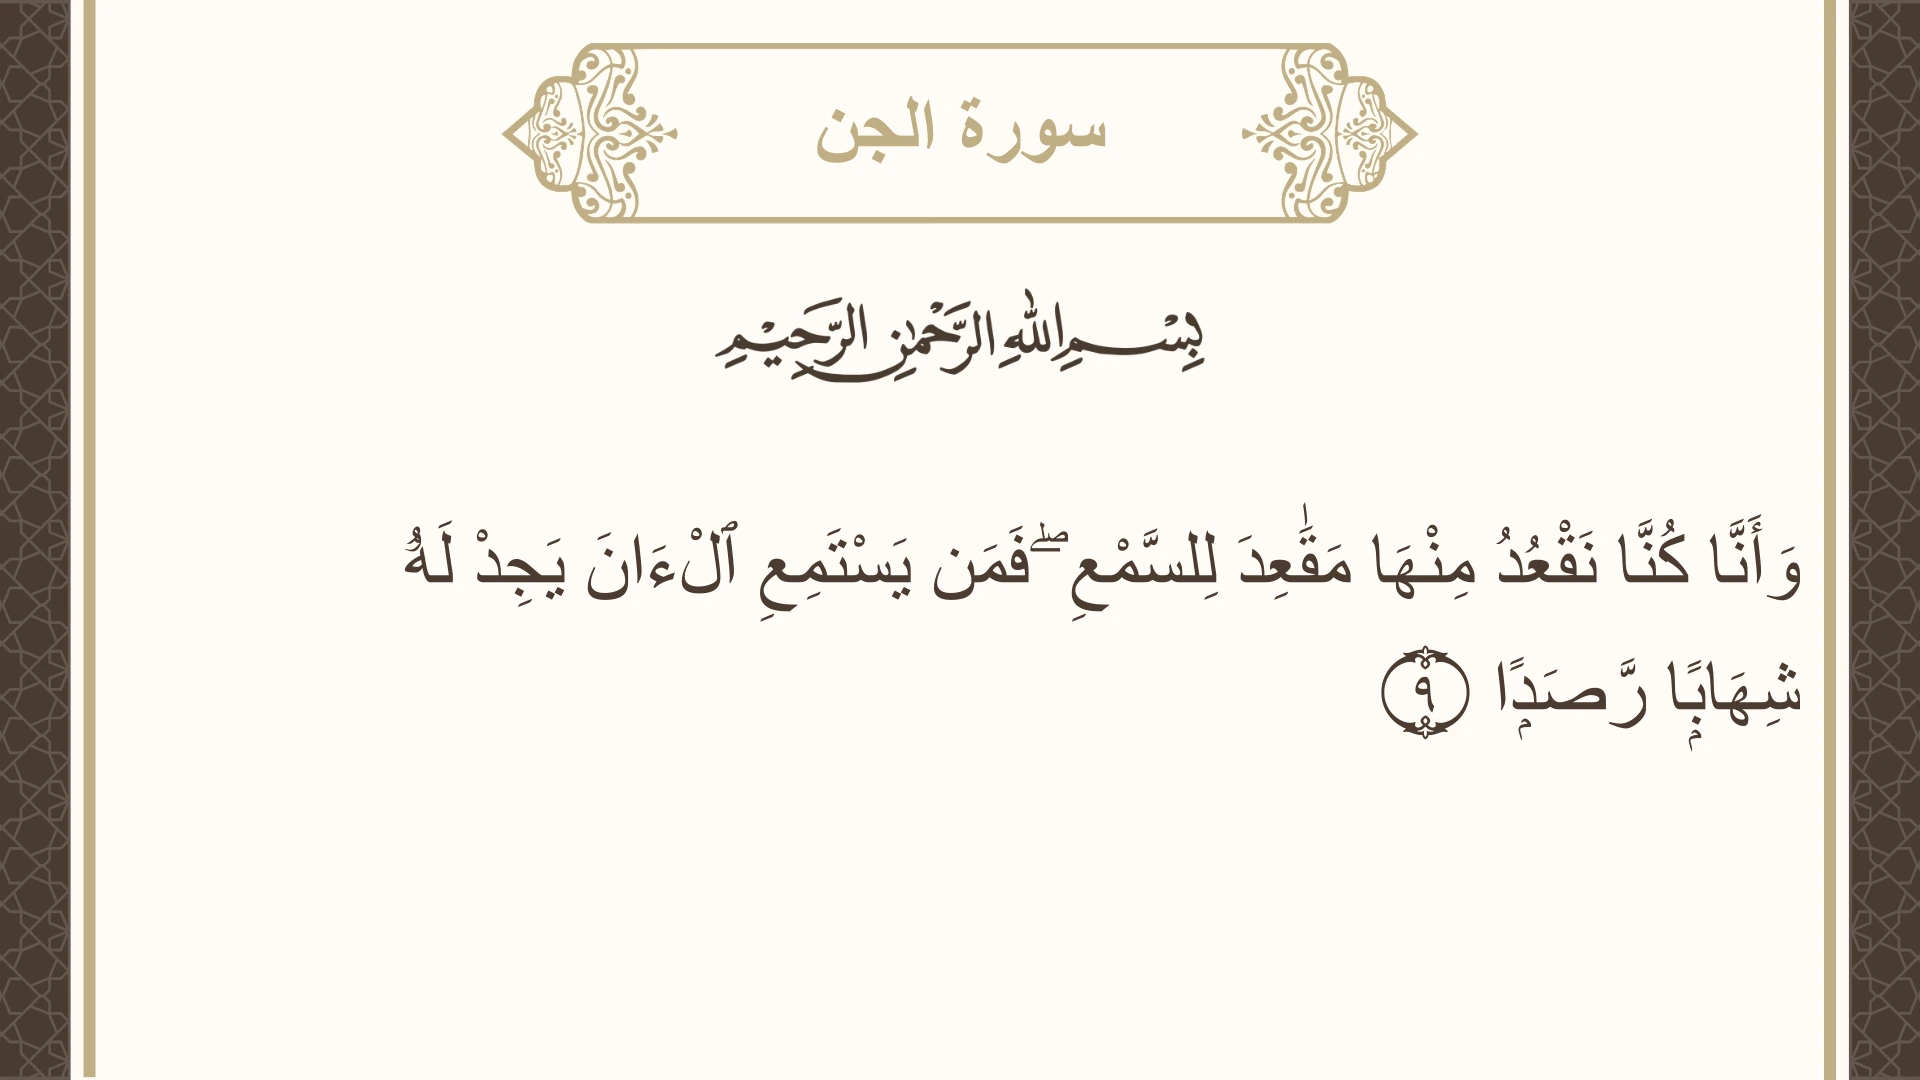 سورة الجن
بِسْمِ اللهِ الرَّحْمٰنِ الرَّحِيْمِ
وَأَنَّا كُنَّا نَقْعُدُ مِنْهَا مَقَٰعِدَ لِلسَّمْعِ ۖ فَمَن يَسْتَمِعِ ٱلْءَانَ يَجِدْ لَهُۥ
شِهَابًۭا رَّصَدًۭا ٩